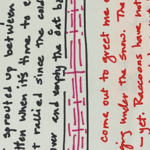 sprouted up between
when it's time to
rallied since the cold
and empty the oat
come out to greet me
under the snow. The
- yet. Raccoons have